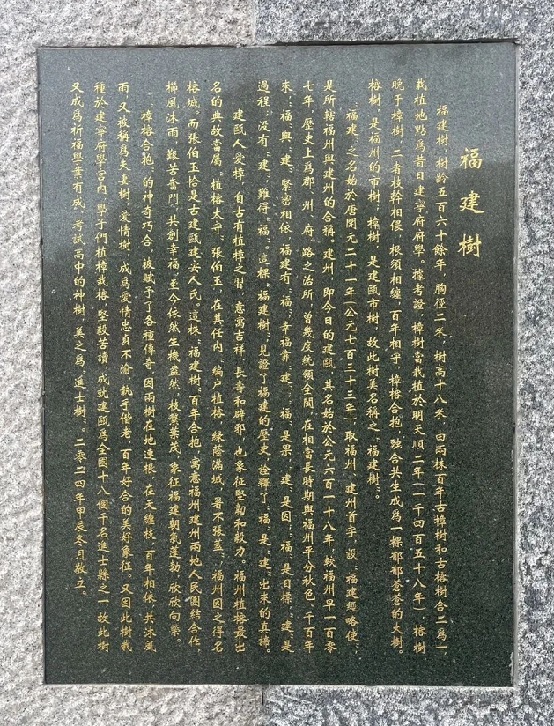 福建樹
福建樹，樹齡五百六十餘年，胸徑二米，樹高十八米，由兩株百年古樟樹和古榕樹合二為一，
栽植地點為昔日建寧府府學。據考證，樟樹當栽植於明天順二年（一千四百五十八年），榕樹
晚于樟樹，二者枝幹相偎，根須相纏，百年相守，樟榕合抱，融合共生成為一棵鄒鄒蒼蒼的大樹。
榕樹，是福州的市樹，樟樹，是建甌市樹，故此樹美名稱之，福建樹。
“福建”之名始於唐開元二十一年（公元七百三十三年），取福州、建州首字，設“福建經略使”，
是所轄福州與建州的合稱。建州，即今日的建甌，其名始於公元六百一十八年，較福州早一百零
七年，歷史上為郡、州、府、路之治所，曾幾度統領全閩，在相當長時期與福州平分秋色。千百年
來，“福”與“建”緊密相依，福建有“福”，幸福靠“建”，“福”是果，“建”是因，“福”是目標，“建”是
過程，沒有“建”，難得“福”。這棵“福建樹”，見證了福建的歷史，詮釋了“福”是“建”出來的真諦。
建甌人愛樟，自古有植樟之習，意寓吉祥、長壽和辟邪，也象征堅韌和毅力。福州植榕最出
名的典故當屬“植榕太守”張伯玉，在其任内，編户植榕，綠蔭滿城，暑不張蓋，福州因之得名
榕城。而張伯玉恰是古建甌建安人氏。這棵“福建樹”百年合抱，寓意福州建州兩地人民團結合作，
櫛風沐雨，艱苦奮鬥，共創幸福，至今依然生機盎然，枝繁葉茂，象征福建朝氣蓬勃，欣欣向榮。
“樟榕合抱”的神奇巧合，被賦予了各種傳奇，因兩樹在地連根，在天纏枝，百年相依，共沐風
雨，又被稱為夫妻樹、愛情樹，成為愛情忠貞不渝、執手偕老、百年好合的美好象征。又因此樹栽
種於建寧府學宮内，學子們植樟栽榕，堅毅苦讀，成就建甌為全國十八個千名進士縣之一，故此樹
又成為祈福學業有成、考試高中的神樹，美之為“進士樹”。二零二四年甲辰冬月敬立。